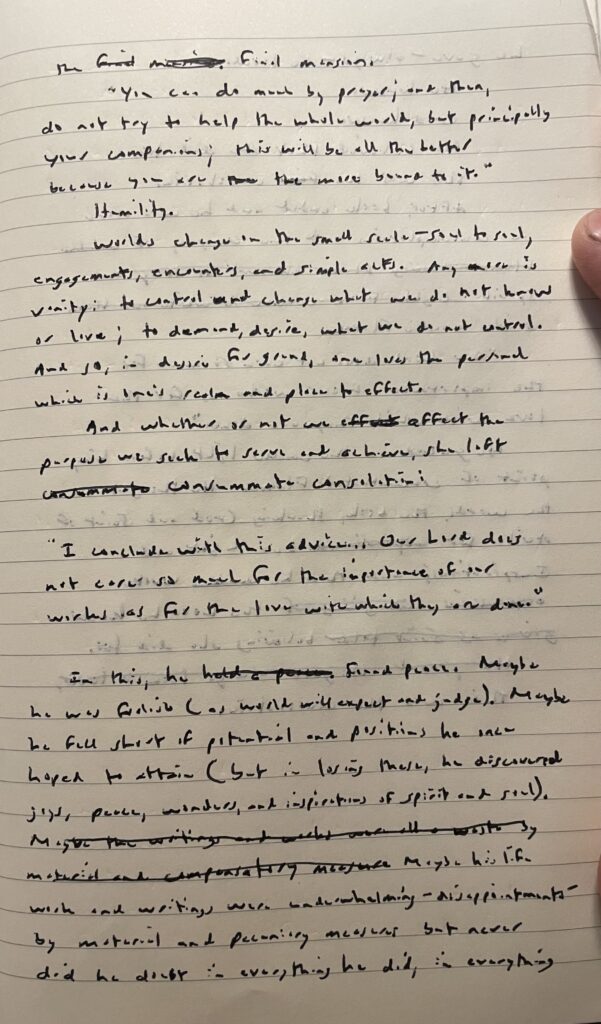 the Final mansion. Final mansion.
"You can do much by prayer; and then,
do not try to help the whole world, but principally
your companions; this will be all the better
because you are the the more bound to it."
Humility.
Worlds change on the small scale - soul to soul,
engagements, encounters, and simple acts. Any more is
vanity: to control and change what we do not know
or love; to demand, desire, what we do not control.
And so, in desire for grand, one loses the personal
which is one's realm and place to effect.
And whether or not we effect affect the
purpose we seek to serve and achieve, she left
consummate consummate consolation:
"I conclude with this advice... Our Lord does
not care so much for the importance of our
works as for the love with which they are done."
In this, he held a peace. Found peace. Maybe
he was foolish (as world will expect and judge). Maybe
he fell short of potential and positions he once
hoped to attain (but in losing these, he discovered
joys, peace, wonders, and inspirations of spirit and soul).
Maybe the writings and works were all a waste by
material and compensatory measure Maybe his life
work and writings were underwhelming - disappointments -
by material and pecuniary measures but never
did he doubt in everything he did, in everything